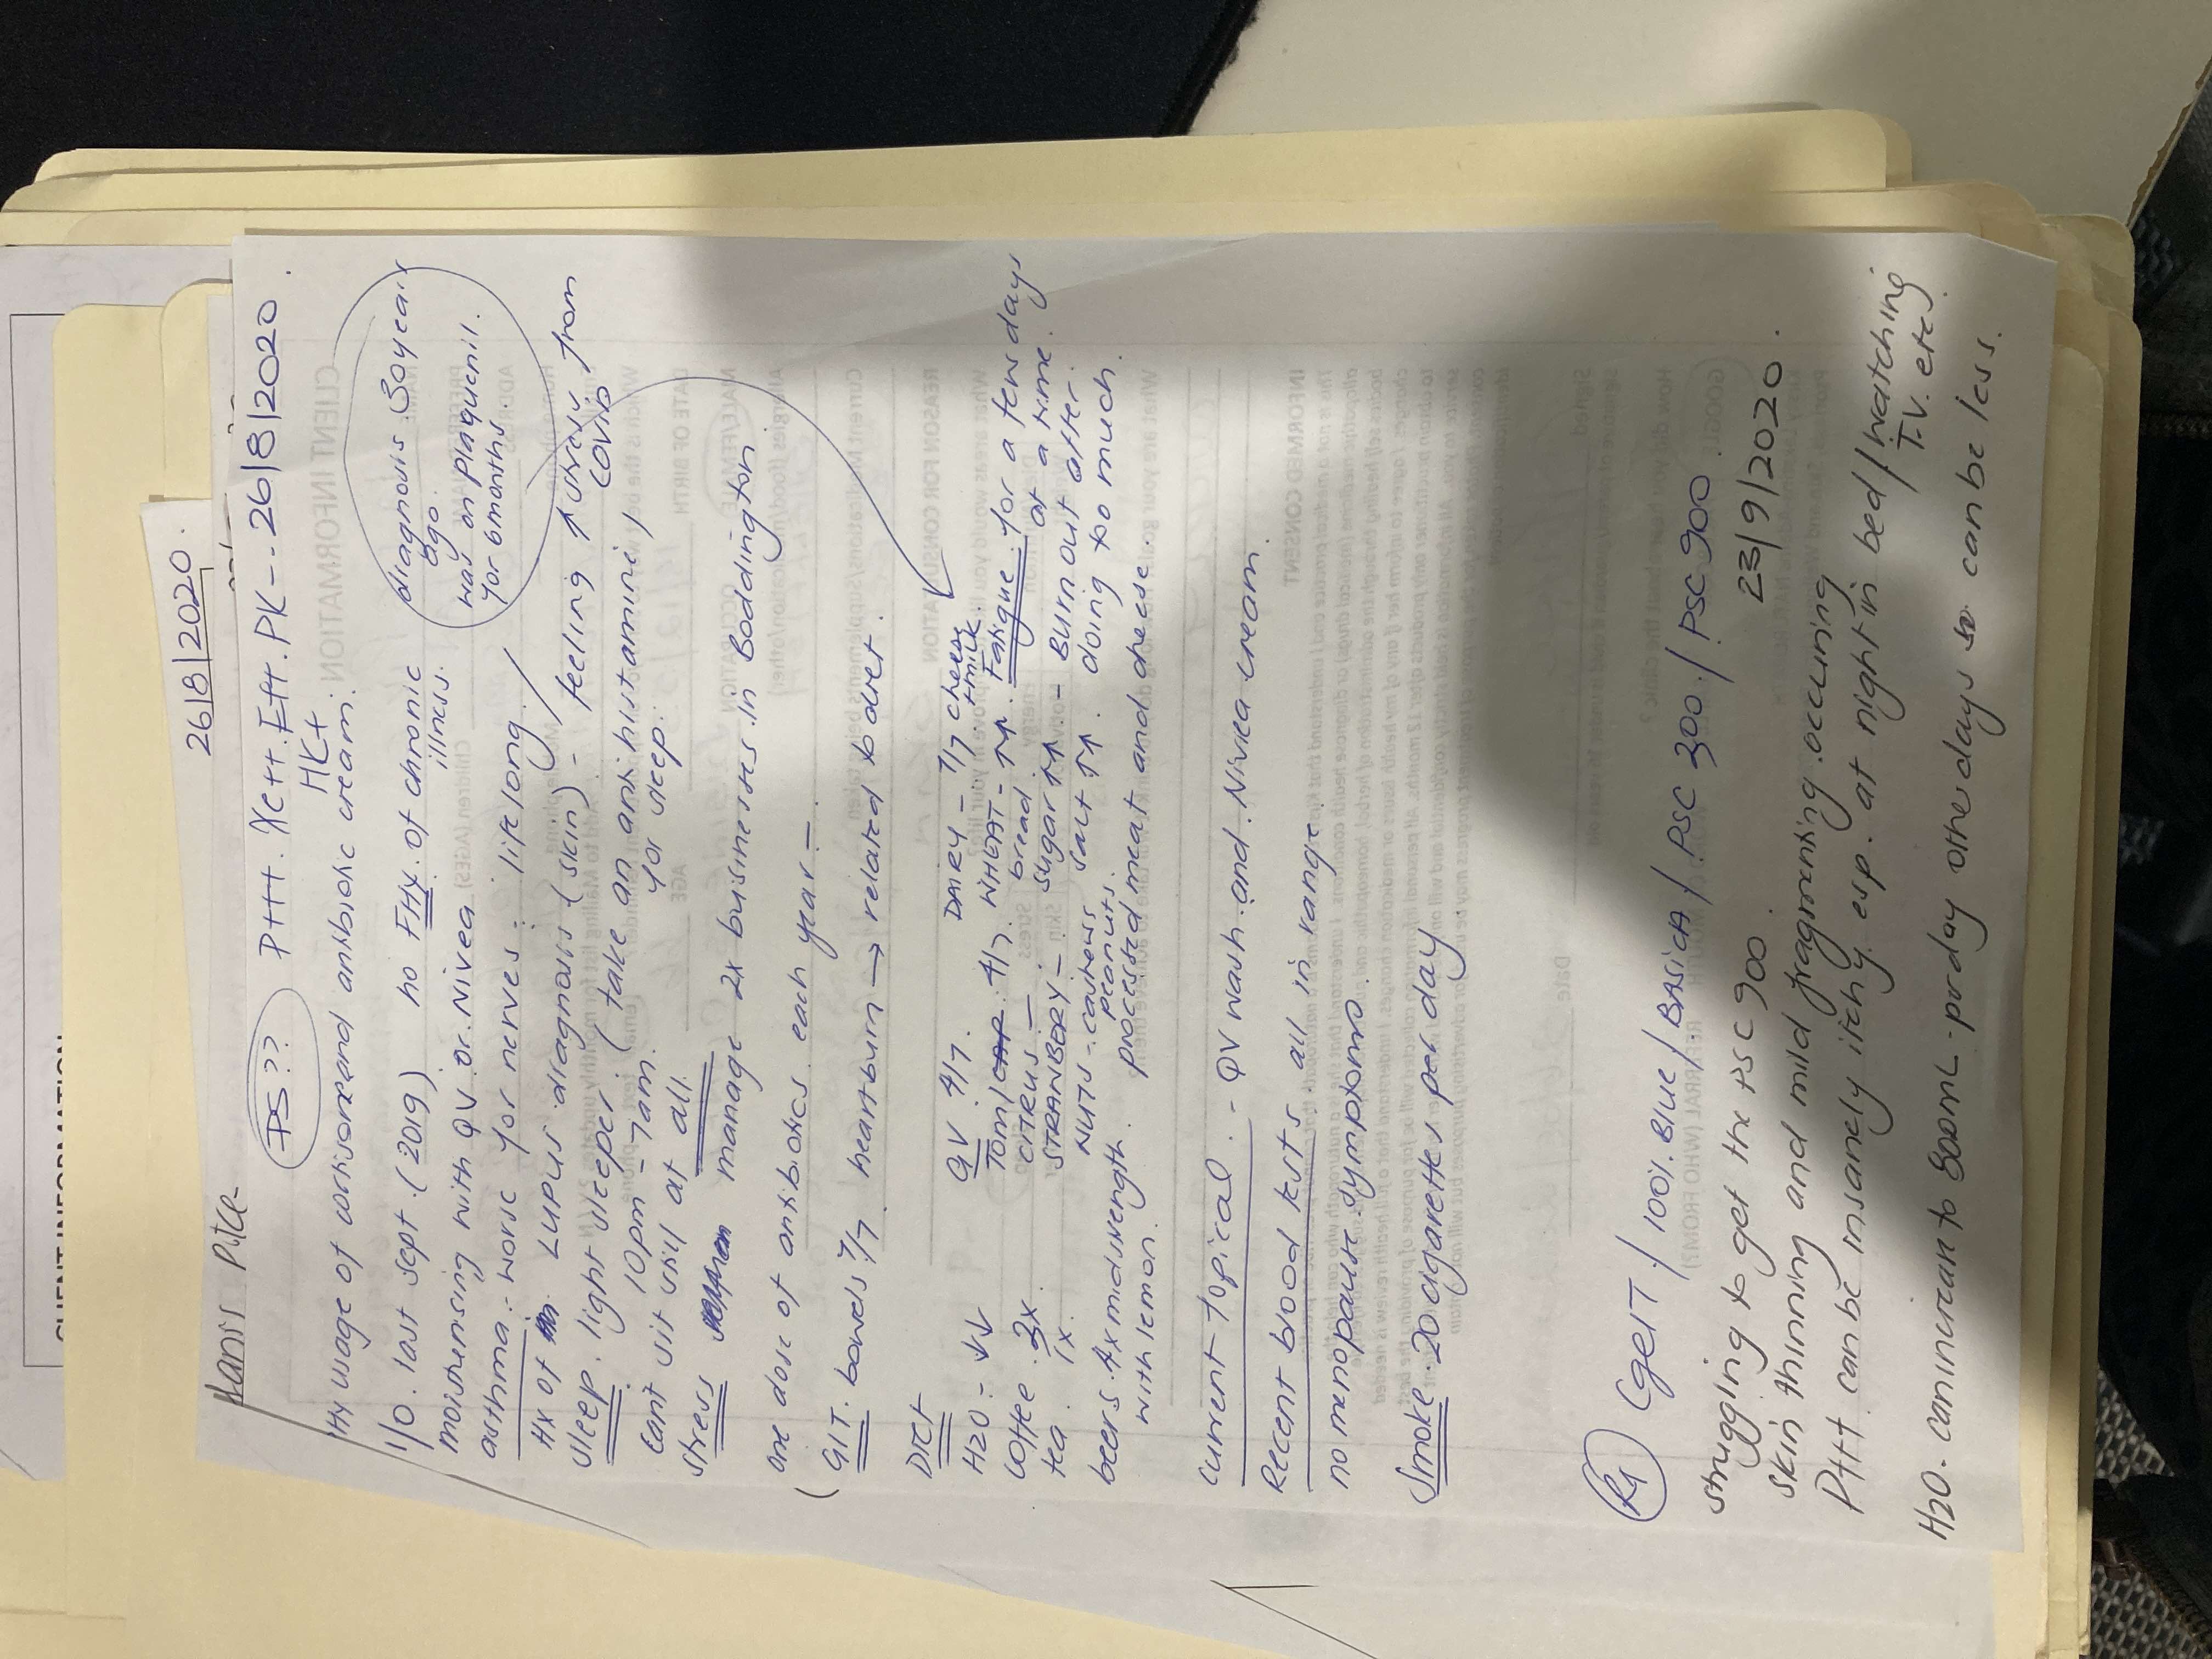 26/8/2020
PS?? P+++. Xc++. E++. PK-. 26/8/2020.
HK+
Hx usage of cortisone and antibiotic cream.
diagnosis 30 years
ago.
was on Plaquenil.
for 6 months.
last sept. (2019) no FHx of chronic
illness.
moisturising with QV or Nivea
asthma - worse for nerves: lifelong.
Hx of Lupus diagnosis (skin) - feeling ↑ stress from
COVID
Sleep. light sleeper. (take an antihistamine)
10pm - 7am. for sleep.
Cant sit still at all.
Stress manage 2x businesses in Boddington
one dose of antibiotics each year -
(GIT. bowels 7/7. heartburn → related to diet.
Diet GV 4/7. DAIRY - 7/7 cheese
+ milk.
H2O - ↓↓ Tom/CAP 4/7. WHEAT - ↑↑. Fatigue for a few days
bread at a time.
coffee. 3x. CITRUS - sugar ↑↑ - Burn out after.
tea. 1x. STRAWBERRY - salt ↑↑. doing too much.
NUTS - cashews
peanuts.
beers 4x midstrength. processed meat and cheese.
with lemon.
current topical. - QV wash and Nivea cream.
Recent blood tests all in range
no menopause symptoms.
Smoke. 20 cigarettes per day
CgelT / 100% Blue / BASICA / PSC 300 / PSC 900.
struggling to get the PSC 900. 23/9/2020.
skin thinning and mild fragmenting occuring
P+++ can be insanely itchy esp. at night in bed / watching
T.V. etc.
H2O - can increase to 800mL per day other days can be less.
CLIENT INFORMATION